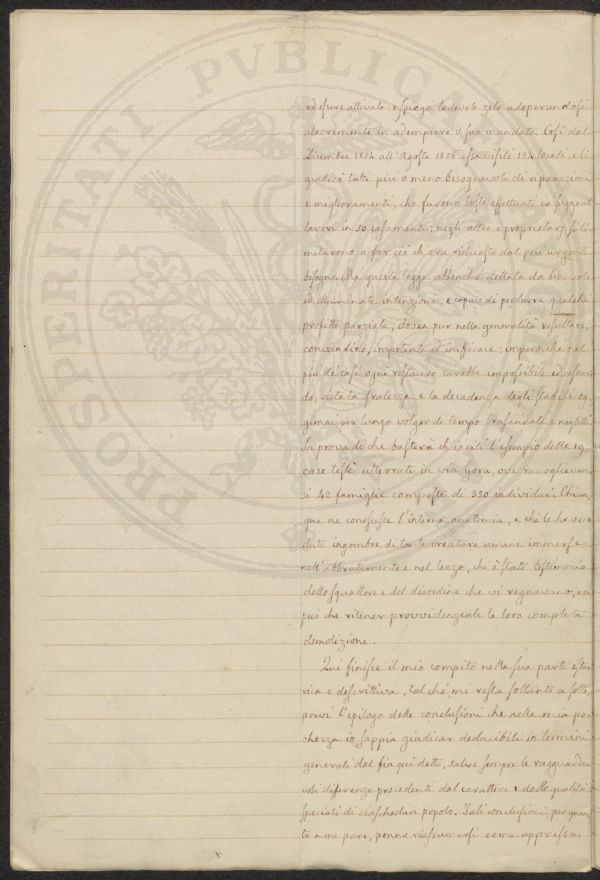 PROSPERITATI PVBLICAE
ad essere attivata, spiegò lodevole zelo adoperandosi
alacremente in adempiere il suo mandato. Così dal
Dicembre 1854 all'Agosto 1856 essa visitò 192 locali, e li
giudicò tutti più o meno bisognevoli di riparazioni
e miglioramenti, che furono tosto effettuati co' seguenti
lavori in 50 casamenti; negli altri i proprietarj si li-
mitarono a far ciò ch'era richiesto dal più urgente
bisogno. Ma questa legge abbenchè dettata da benevole
ed illuminate intenzioni, e capace di produrre qualche
profitto parziale, dovea pur nella generalità resultare,
convien dirlo, impotente ed inefficace; imperochè nel
più de' casi ogni restauro sarebbe impossibile ed
vista la fralezza e la decadenza degli stabili og-
gimai per lungo volger di tempo trasandati e negletti.
In prova di che basterà ch'io citi l'esempio delle 19
case testè atterrate in via Gora, ove raccoglievan-
si 42 famiglie composte di 350 individui. Chiun-
que ne conoscesse l'interna anatomia, e chi le ha ve-
dute ingombre di tante creature umane immerse
nell'abbrutimento e nel lezzo, chi è stato testimonio
dello squallore e del disordine che vi regnavano, non
può che ritener provvidenziale la loro completa
demolizione.
Qui finisce il mio compito nella sua parte isto-
rica e descrittiva, tal chè mi resta soltanto a sotto-
porvi l'epilogo delle conclusioni che nella mia po-
chezza io sappia giudicar deducibili in termini
generali dal fin qui detto, salve sempre le ragguarde-
voli differenze procedenti dal carattere e dalle qualità
speciali di ciaschedun popolo. Tali conclusioni, per quan-
to a me pare, ponno riassumersi come appresso.